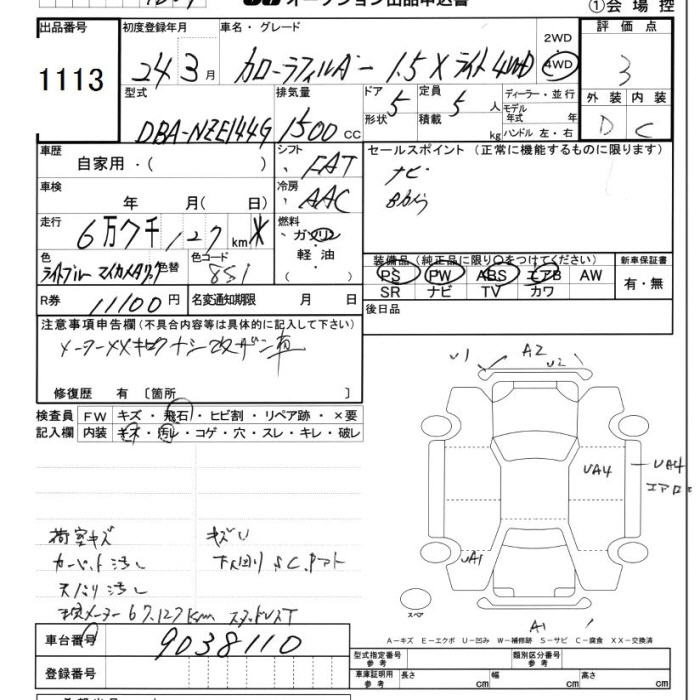 オークション出品申込書
①会場控
出品番号 1113
初度登録年月 24 3月
車名・グレード カローラフィルダー 1.5 X ライト 4WD
2WD
4WD
評価点 3
外装 D 内装 C
型式 DBA-NZE144G
排気量 1500 CC
ドア形状 5
定員 5 人
積載 kg
ディーラー・並行
モデル年式 年
ハンドル 左・右
車歴 自家用・( )
シフト FAT
セールスポイント (正常に機能するものに限ります)
ナビ
車検 年 月( 日)
冷房 AAC
走行 6万7千127km
燃料 ガソリン
軽油
( )
色 ライトブルーマイカメタリック
色替
色コード 8S1
装備品(純正品に限り○をつけてください)
PS PW ABS エアB AW
SR ナビ TV カワ
新車保証書
有・無
R券 11100円
名変通知期限 月 日
後日品
注意事項申告欄(不具合内容等は具体的に記入して下さい)
メーターXXキロクナシ改ザン車
修復歴 有〔箇所 〕
検査員記入欄
FW キズ・飛石・ヒビ割・リペア跡・×要
内装 キズ・汚れ・コゲ・穴・スレ・キレ・破レ
荷室キズ
キズU
カーペット汚レ
下回りSC.Pアト
天バリ汚レ
換メーター67,127km スタッドレスT
U1 A2 U2
UA4
UA4
エアロ
UA1
スペア
A1
A-キズ E-エクボ U-凹み W-補修跡 S-サビ C-腐食 XX-交換済
車台番号 9038110
登録番号
型式指定番号 参考
類別区分番号 参考
車庫証明用 参考 長さ cm 幅 cm 高さ cm